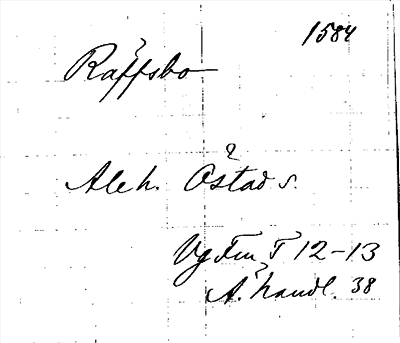 1584
Räffsbo
Aleh. Östad s.
Vg Fm I 12-13
Ä. handl. 38